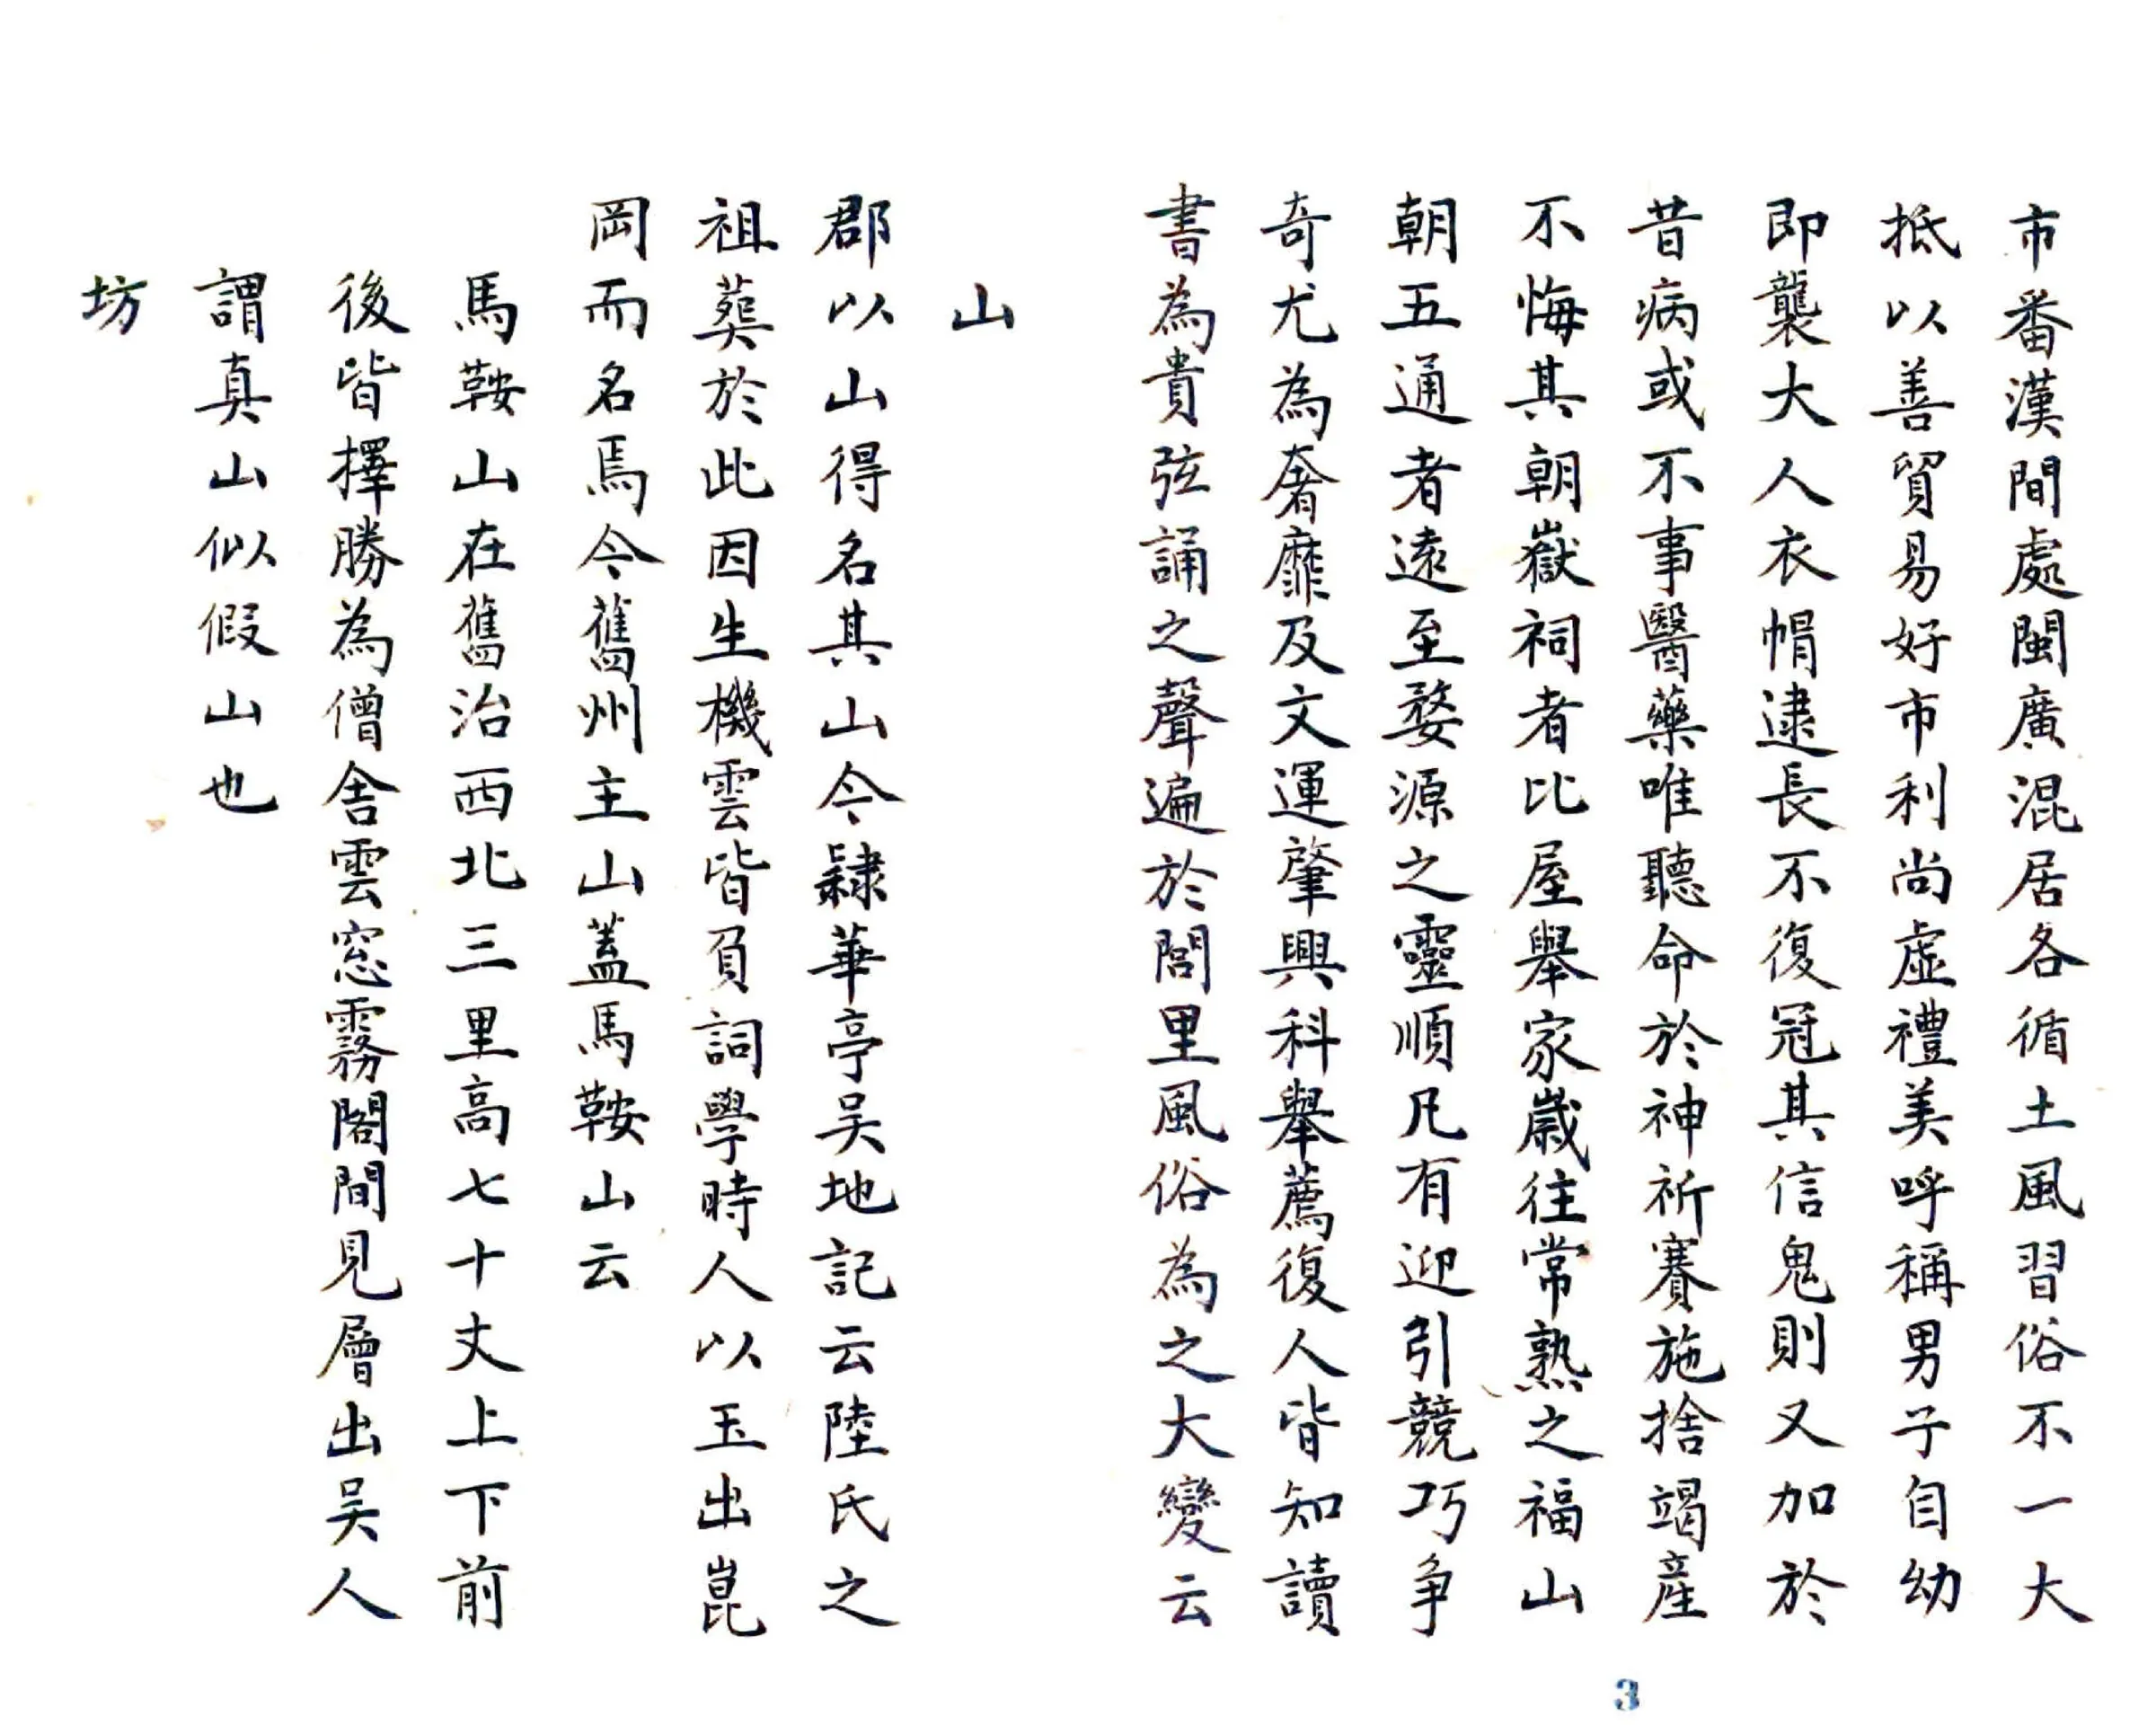 市番漢間處閩廣混居各循土風習俗不一大
抵以善貿易好市利尚虛禮美呼稱男子自幼
即襲大人衣帽逮長不復冠其信鬼則又加於
昔病或不事醫藥唯聽命於神祈賽施捨竭産
不悔其朝嶽祠者比屋舉家歲往常熟之福山
朝五通者遠至婺源之靈順凡有迎引競巧争
奇尤為奢靡及文運肇興科舉薦復人皆知讀
書為貴弦誦之聲遍於閭里風俗為之大變云
山
郡以山得名其山今隸華亭吴地記云陸氏之
祖葬於此因生機雲皆負詞學時人以玉出崑
岡而名焉今舊州主山蓋馬鞍山云
馬鞍山在舊治西北三里高七十丈上下前
後皆擇勝為僧舍雲窓霧閣間見層出吴人
謂真山似假山也
坊
3